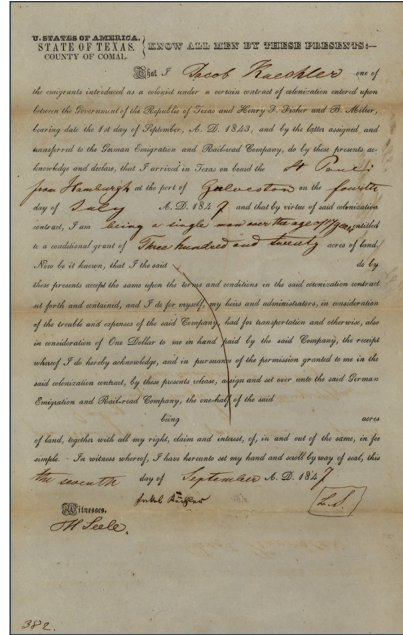 U. STATES OF AMERICA,
STATE OF TEXAS.
COUNTY OF COMAL.
KNOW ALL MEN BY THESE PRESENTS:—
That I Jacob Kuechler one of
the emigrants introduced as a colonist under a certain contract of colonization entered upon
between the Government of the Republic of Texas and Henry F. Fisher and B. Miller,
bearing date the 1st day of September, A. D. 1843, and by the latter assigned, and
transferred to the German Emigration and Railroad Company, do by these presents ac-
knowledge and declare, that I arrived in Texas on board the St Pauli
from Hamburgh at the port of Galveston on the fourth
day of July A. D. 1847 and that by virtue of said colonization
contract, I am being a single man over the age of 17 years entitled
to a conditional grant of Three hundred and twenty acres of land.
Now be it known, that I the said do by
these presents accept the same upon the terms and conditions in the said colonization contract
set forth and contained, and I do for myself, my heirs and administrators, in consideration
of the trouble and expenses of the said Company, had for transportation and otherwise, also
in consideration of One Dollar to me in hand paid by the said Company, the receipt
whereof I do hereby acknowledge, and in pursuance of the permission granted to me in the
said colonization contract, by these presents release, assign and set over unto the said German
Emigration and Railroad Company, the one-half of the said
being acres
of land, together with all my right, claim and interest, of, in and out of the same, in fee
simple. - In witness whereof, I have hereunto set my hand and scroll by way of seal, this
the seventh day of September A. D. 1847
L.S.
Witnesses.
H Seele.
382.